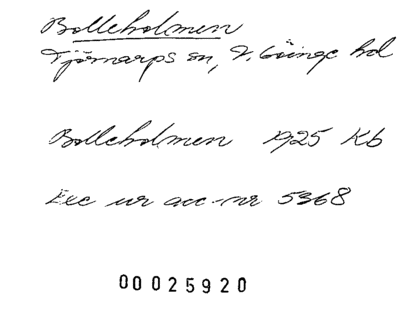 Bolleholmen
Tjörnarps sn, V. Göinge hd
Bolleholmen 1925 Kb
Exc ur acc.-nr 5368
00025920